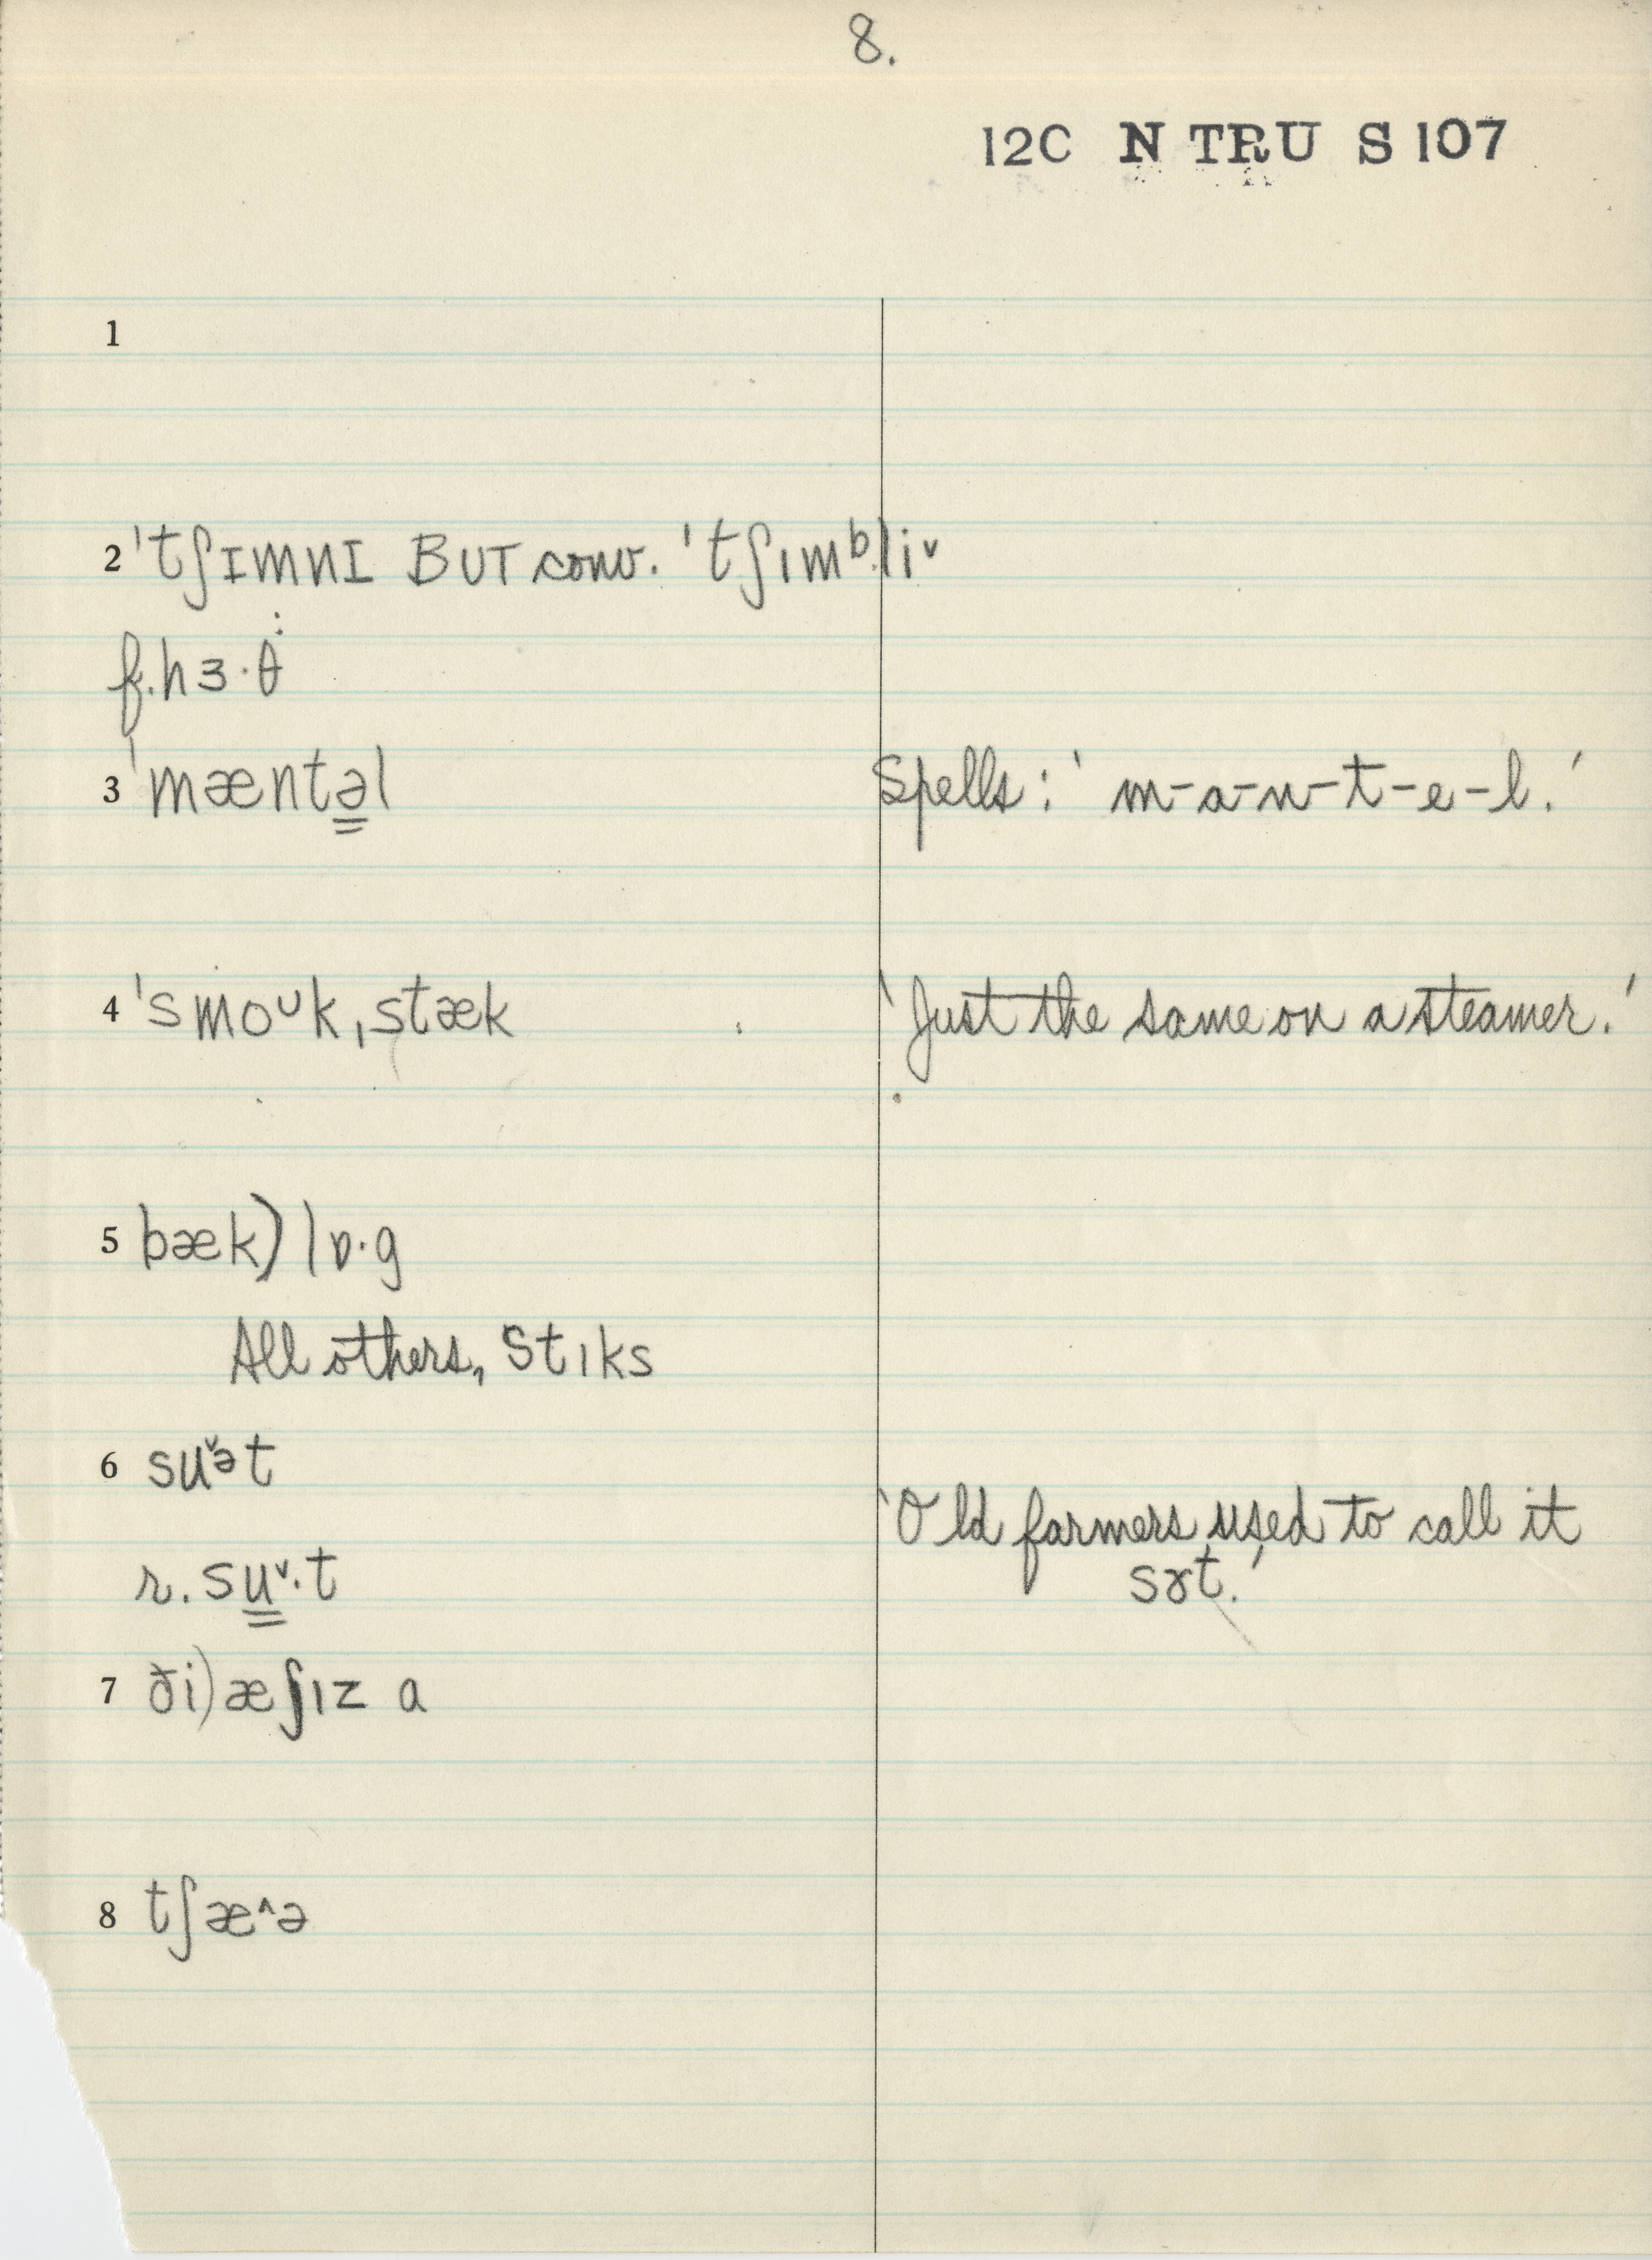 8.
12C N TRU S 107
1
2 'tʃɪmnɪ BUT conv. 'tʃımᵇliˇ
f. hɜ·θ
3 'mæntəl Spells: 'm-a-n-t-e-l.'
4 'smoᴜkˌstæk 'Just the same on a steamer.'
5 bæk) lɒ·g
All others, stıks
6 suˇət
'Old farmers used to call it
r. suˇ·t sɤt.'
7 ði) æʃız a
8 tʃæ^ə